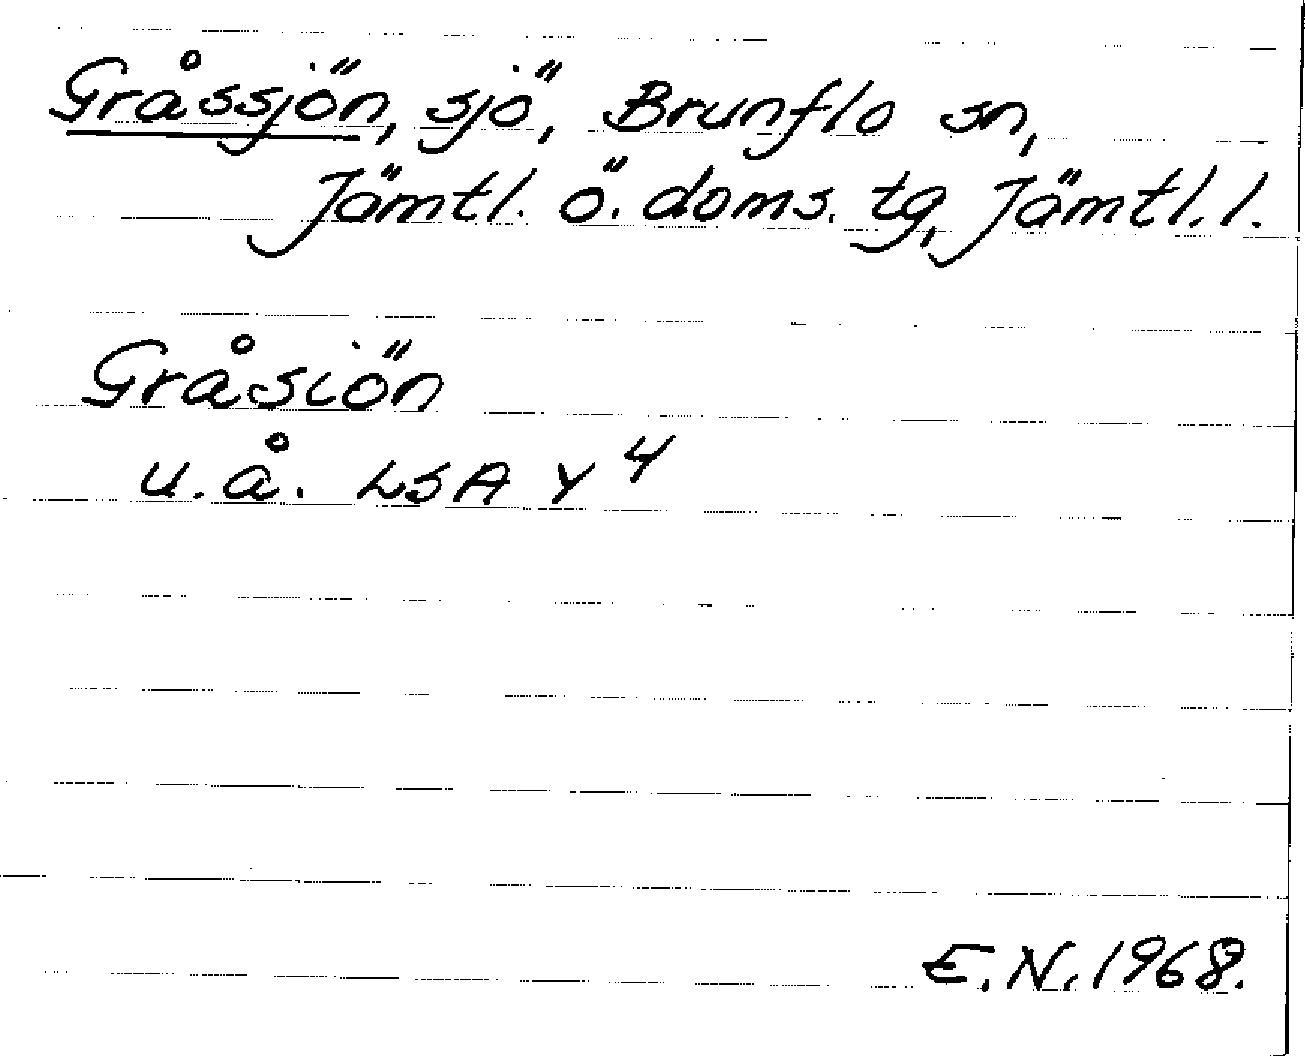 Gråssjön, sjö, Brunflo sn,
Jämtl. ö. doms. tg, Jämtl. l.
Gråsiön
u.å. LSA Y 4
E.N. 1968.